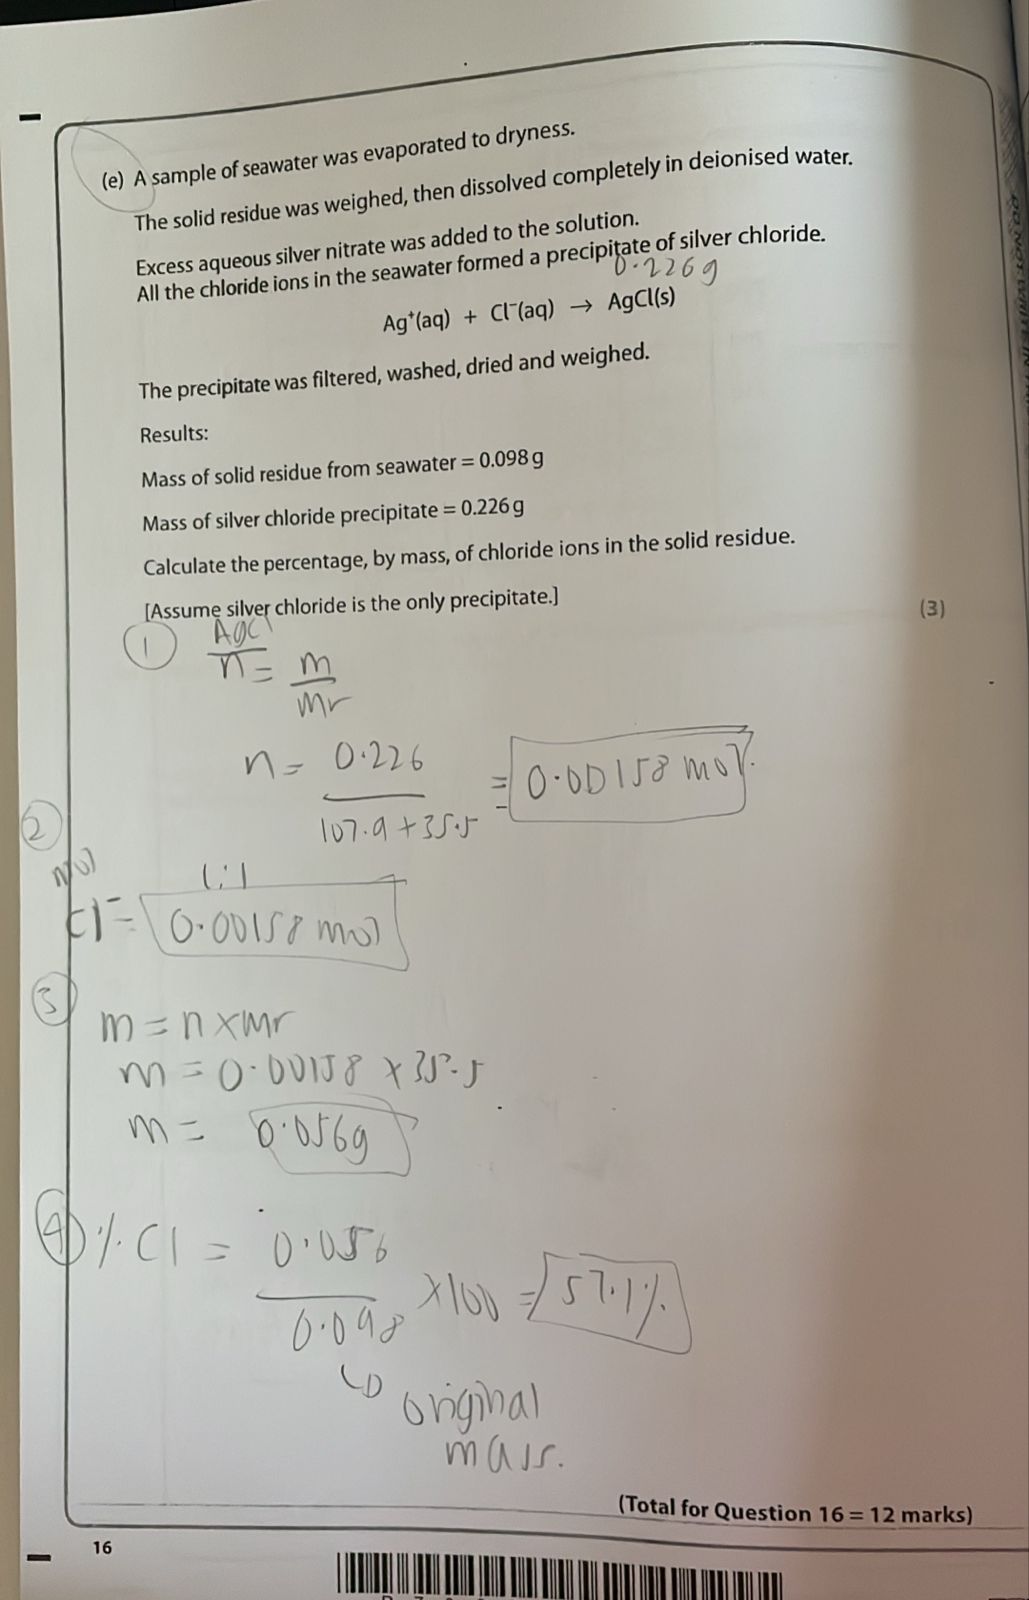 (e) A sample of seawater was evaporated to dryness.
The solid residue was weighed, then dissolved completely in deionised water.
Excess aqueous silver nitrate was added to the solution.
All the chloride ions in the seawater formed a precipitate of silver chloride.
0.226g
Ag⁺(aq) + Cl⁻(aq) → AgCl(s)
The precipitate was filtered, washed, dried and weighed.
Results:
Mass of solid residue from seawater = 0.098 g
Mass of silver chloride precipitate = 0.226 g
Calculate the percentage, by mass, of chloride ions in the solid residue.
[Assume silver chloride is the only precipitate.]
(3)
1 AgCl
n = m
mr
n = 0.226
107.9 + 35.5
= 0.00158 mol.
2
mol
1:1
Cl⁻ = 0.00158 mol
3
m = n x mr
m = 0.00158 x 35.5
m = 0.056g
4 % Cl = 0.056
0.098
x100 = 57.1%
original
mass.
(Total for Question 16 = 12 marks)
16